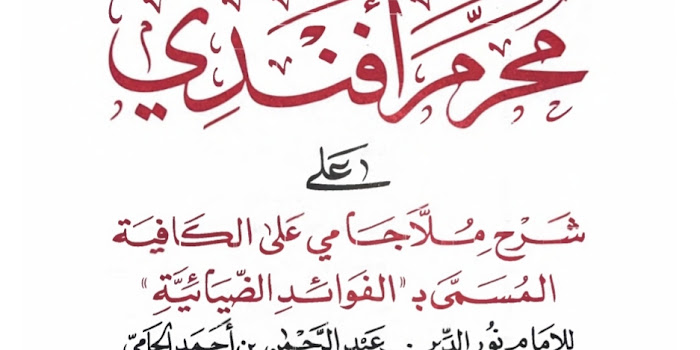 محرّم أفندي
على
شرح ملّا جامي على الكافية
المسمّى بـ «الفوائد الضّيائيّة»
للإمام نور الدين عبد الرّحمٰن بن أحمد الجاميّ